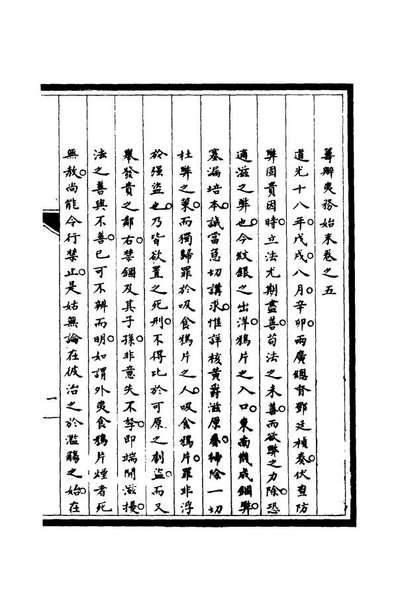 籌辦夷務始末卷之五
道光十八年戊戌八月辛卯兩廣總督鄧廷楨奏伏查防
弊固貴因時立法尤期盡善苟法之未善而欲弊之力除恐
適滋之弊也今紋銀之出洋鴉片之入口東南幾成錮弊
塞漏培本誠當急切講求惟詳核黃爵滋原奏掃除一切
杜弊之策而獨歸罪於吸食鴉片之人吸食鴉片罪非浮
於強盜也乃皆欲置之死刑不得比於可原之劇盜而又
舉發責之鄰右禁錮及其子孫非意失不孥即端開滋擾
法之善與不善已可不辨而明如謂外夷食鴉片煙者死
無赦尚能令行禁止是姑無論在彼治之於濫觴之始在
一